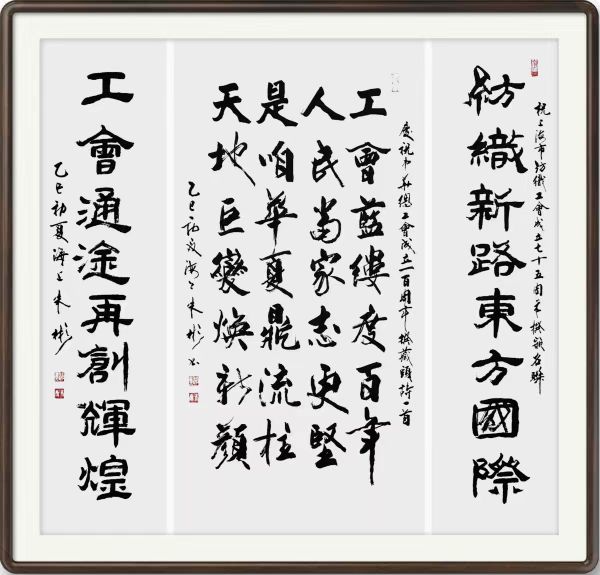 祝上海市紡織工會成立七十五周年撰名聯
紡織新路東方國際
慶祝中華總工會成立一百周年撰藏頭詩一首
工會藍縷度百年
人民當家志更堅
是咱華夏鼎流柱
天地巨變煥新顏
乙巳初夏海上朱彬书
工會通途再創輝煌
乙巳初夏海上朱彬